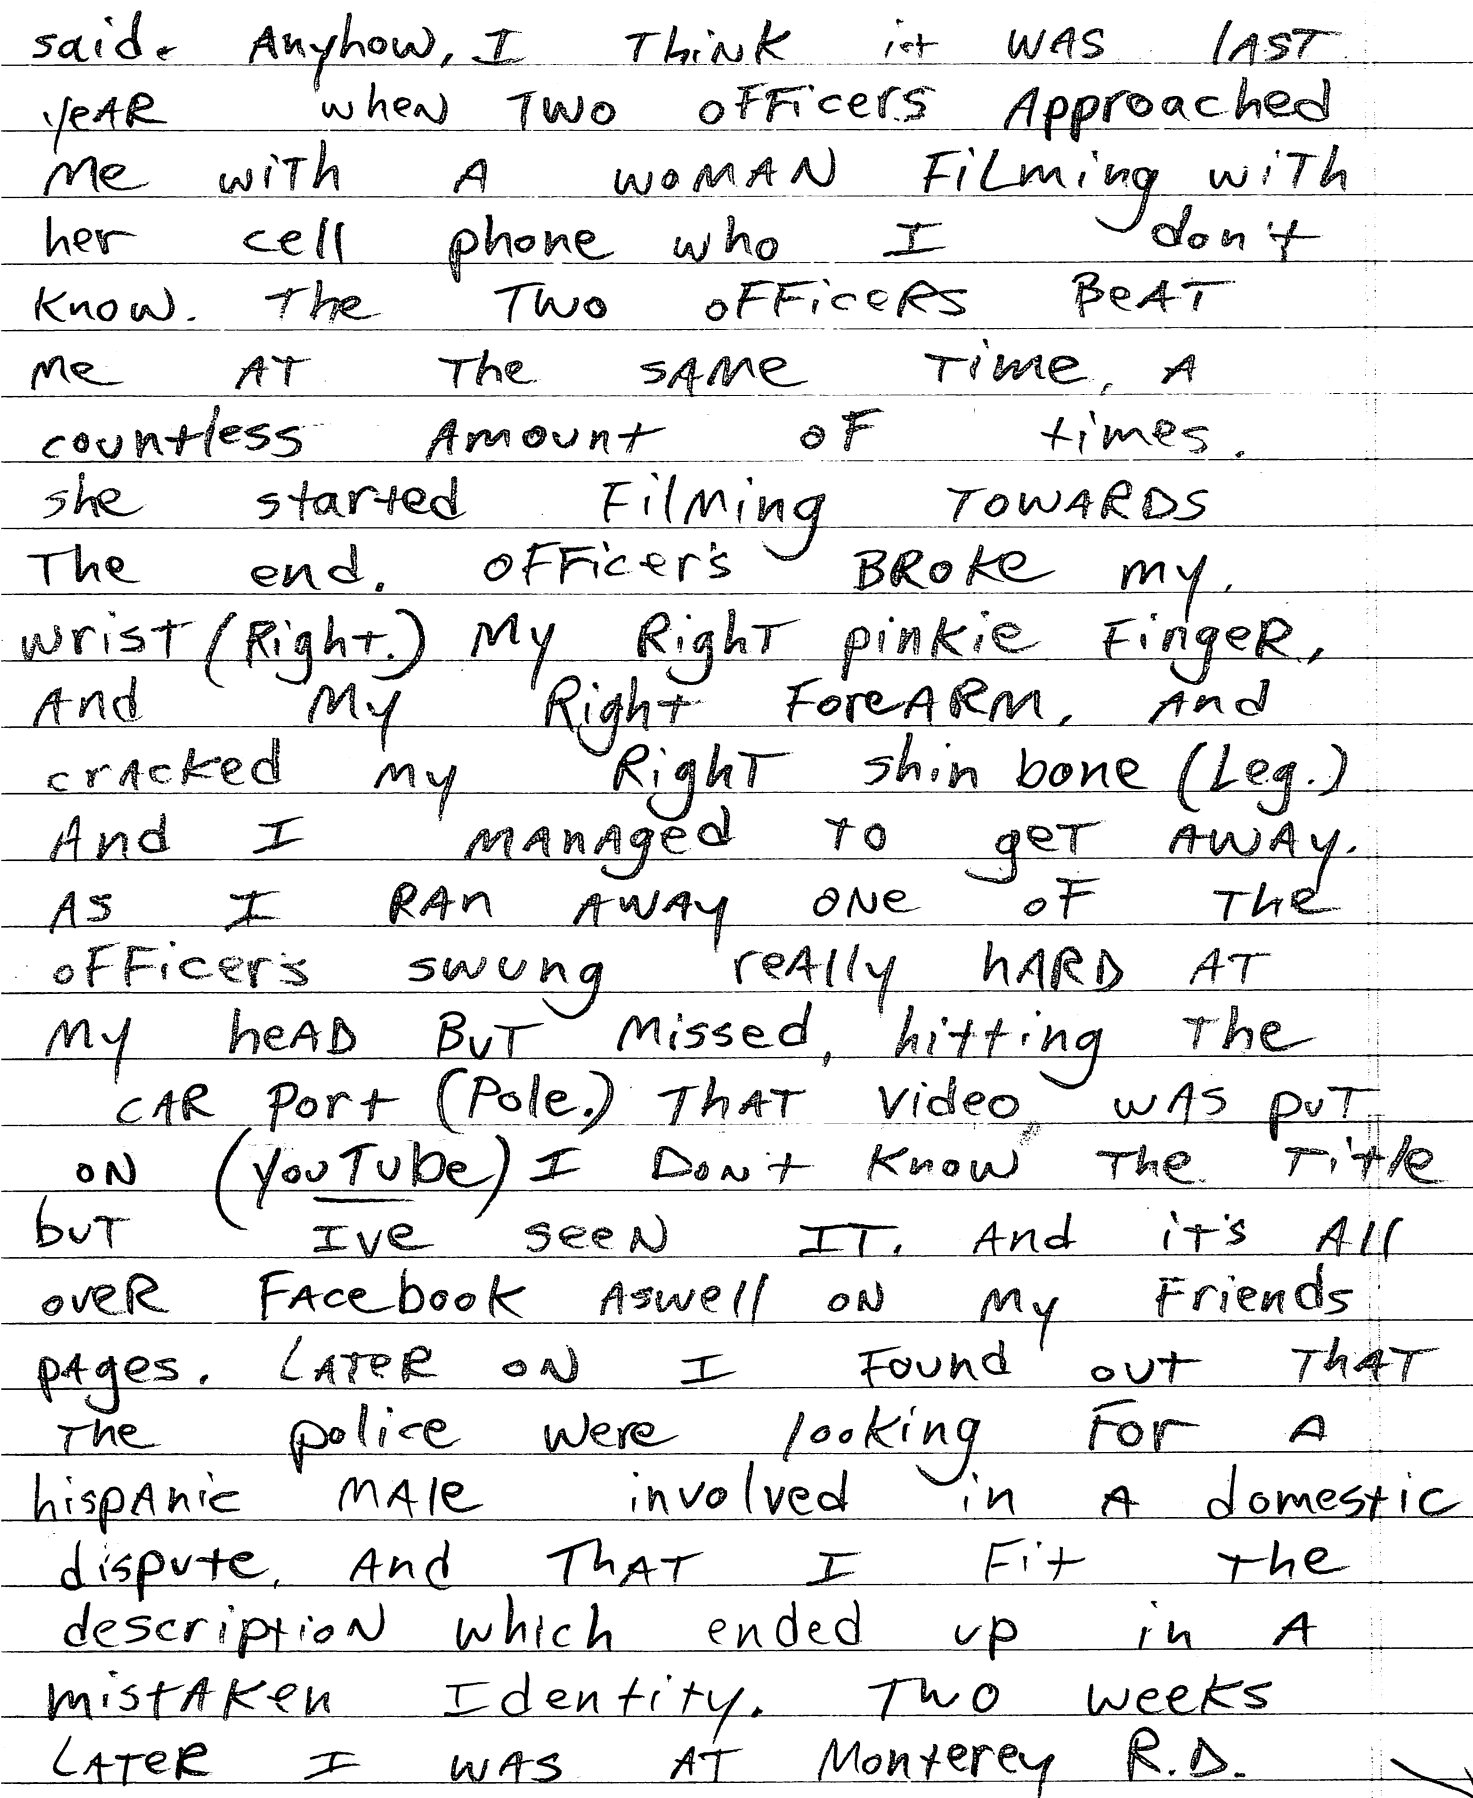 said. Anyhow, I Think it WAS lAST
yeAR when TWO oFFicers Approached
Me wiTh A woMAN FiLming wiTh
her cell phone who I don't
Know. The Two oFFiceRs BeAT
Me AT The sAMe Time, A
countless Amount oF times.
she started Filming TOWARDS
The end. oFFicer's BRoke my.
wrist (Right.) My RighT pinkie FingeR,
And My Right ForeARM, And
crAcked my RighT shin bone (Leg.)
And I mAnAged To geT AWAy.
As I RAn AwAy oNe oF The
oFFicer's swung reAlly hARD AT
My heAD BuT Missed, hitting The
CAR Port (Pole.) ThAT video, wAs puT
oN (youTube) I Don't Know The Title
buT Ive seeN IT. And it's All
oveR FAcebook Aswell oN my Friends
pAges. LATeR oN I Found out ThAT
The police were looking For A
hispAnic MAle involved in A domestic
dispute, And ThAT I Fit the
descriptioN which ended up in A
mistAken Identity. Two weeks
LATeR I WAS AT Monterey R.D.